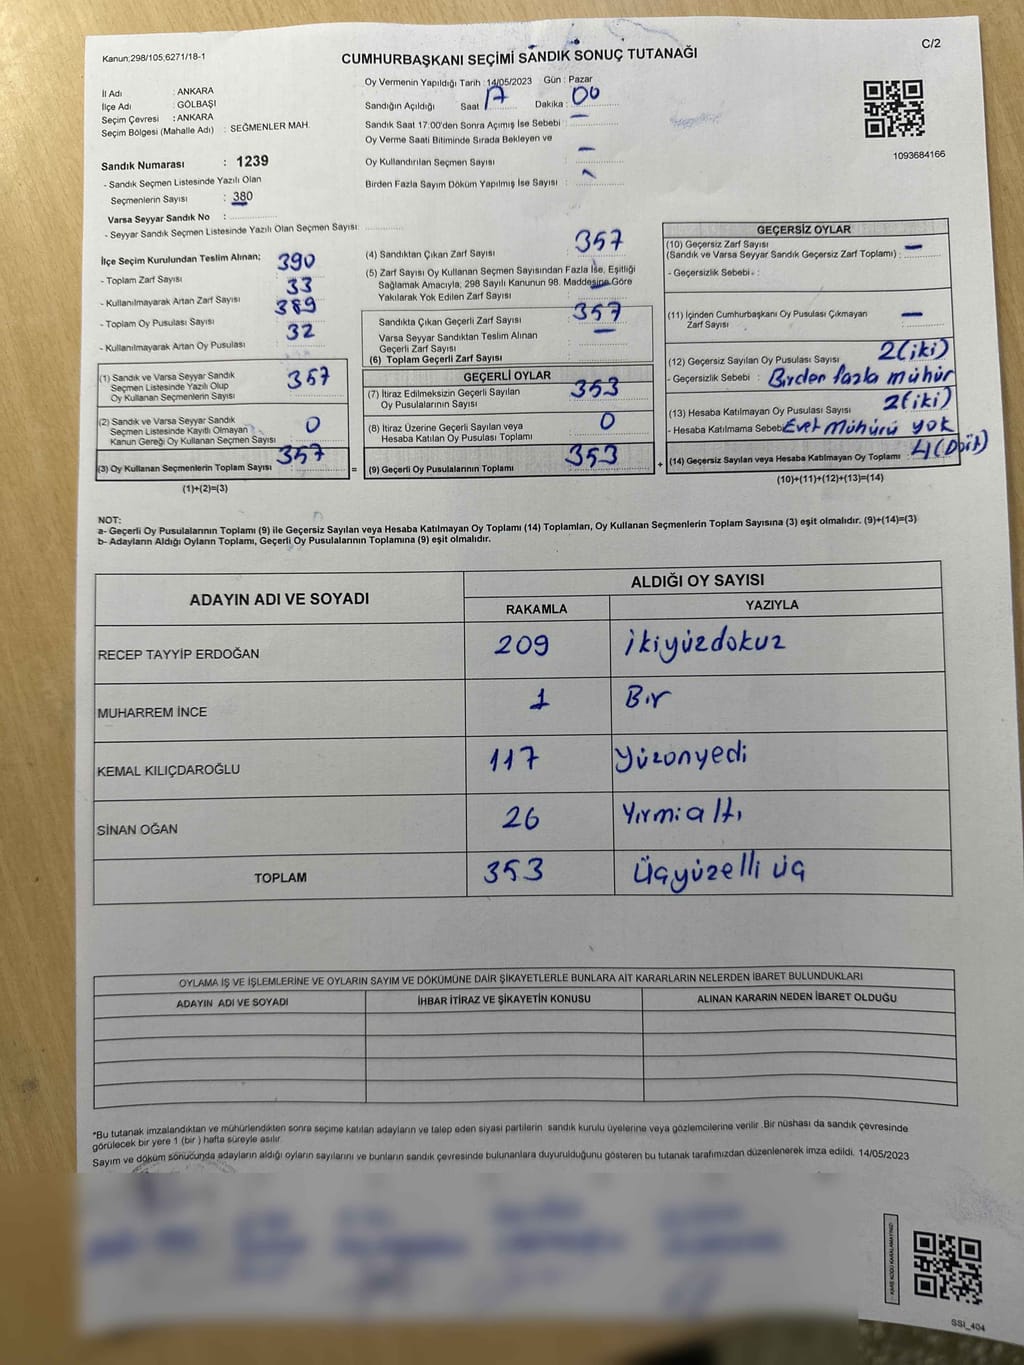 Kanun;298/105;6271/18-1
C/2
CUMHURBAŞKANI SEÇİMİ SANDIK SONUÇ TUTANAĞI
İl Adı : ANKARA
İlçe Adı : GÖLBAŞI
Seçim Çevresi : ANKARA
Seçim Bölgesi (Mahalle Adı) : SEĞMENLER MAH.
Sandık Numarası : 1239
- Sandık Seçmen Listesinde Yazılı Olan
Seçmenlerin Sayısı : 380
Varsa Seyyar Sandık No :
- Seyyar Sandık Seçmen Listesinde Yazılı Olan Seçmen Sayısı:
Oy Vermenin Yapıldığı Tarih : 14/05/2023 Gün : Pazar
Sandığın Açıldığı Saat 17 Dakika : 00
Sandık Saat 17:00'den Sonra Açımış İse Sebebi : —
Oy Verme Saati Bitiminde Sırada Bekleyen ve
Oy Kullandırılan Seçmen Sayısı : —
Birden Fazla Sayım Döküm Yapılmış İse Sayısı :
1093684166
İlçe Seçim Kurulundan Teslim Alınan;
- Toplam Zarf Sayısı 390
- Kullanılmayarak Artan Zarf Sayısı 33
- Toplam Oy Pusulası Sayısı 389
- Kullanılmayarak Artan Oy Pusulası 32
(1) Sandık ve Varsa Seyyar Sandık
Seçmen Listesinde Yazılı Olup
Oy Kullanan Seçmenlerin Sayısı 357
(2) Sandık ve Varsa Seyyar Sandık
Seçmen Listesinde Kayıtlı Olmayan
Kanun Gereği Oy Kullanan Seçmen Sayısı 0
(3) Oy Kullanan Seçmenlerin Toplam Sayısı 357
(1)+(2)=(3)
=
(4) Sandıktan Çıkan Zarf Sayısı 357
(5) Zarf Sayısı Oy Kullanan Seçmen Sayısından Fazla İse, Eşitliği
Sağlamak Amacıyla, 298 Sayılı Kanunun 98. Maddesine Göre
Yakılarak Yok Edilen Zarf Sayısı —
Sandıkta Çıkan Geçerli Zarf Sayısı 357
Varsa Seyyar Sandıktan Teslim Alınan
Geçerli Zarf Sayısı —
(6) Toplam Geçerli Zarf Sayısı
GEÇERLİ OYLAR
(7) İtiraz Edilmeksizin Geçerli Sayılan
Oy Pusulalarının Sayısı 353
(8) İtiraz Üzerine Geçerli Sayılan veya
Hesaba Katılan Oy Pusulası Toplamı 0
(9) Geçerli Oy Pusulalarının Toplamı 353
+
GEÇERSİZ OYLAR
(10) Geçersiz Zarf Sayısı
(Sandık ve Varsa Seyyar Sandık Geçersiz Zarf Toplamı) : —
- Geçersizlik Sebebi :
(11) İçinden Cumhurbaşkanı Oy Pusulası Çıkmayan
Zarf Sayısı —
(12) Geçersiz Sayılan Oy Pusulası Sayısı 2(iki)
- Geçersizlik Sebebi : Birden fazla mühür
(13) Hesaba Katılmayan Oy Pusulası Sayısı 2(iki)
- Hesaba Katılmama Sebebi Evet Mühürü yok
(14) Geçersiz Sayılan veya Hesaba Katılmayan Oy Toplamı : 4(Dört)
(10)+(11)+(12)+(13)=(14)
NOT:
a- Geçerli Oy Pusulalarının Toplamı (9) ile Geçersiz Sayılan veya Hesaba Katılmayan Oy Toplamı (14) Toplamları, Oy Kullanan Seçmenlerin Toplam Sayısına (3) eşit olmalıdır. (9)+(14)=(3)
b- Adayların Aldığı Oyların Toplamı, Geçerli Oy Pusulalarının Toplamına (9) eşit olmalıdır.
ADAYIN ADI VE SOYADI
ALDIĞI OY SAYISI
RAKAMLA YAZIYLA
RECEP TAYYİP ERDOĞAN 209 ikiyüzdokuz
MUHARREM İNCE 1 Bir
KEMAL KILIÇDAROĞLU 117 yüzonyedi
SİNAN OĞAN 26 Yırmialtı
TOPLAM 353 Üçyüzelli üç
OYLAMA İŞ VE İŞLEMLERİNE VE OYLARIN SAYIM VE DÖKÜMÜNE DAİR ŞİKAYETLERLE BUNLARA AİT KARARLARIN NELERDEN İBARET BULUNDUKLARI
ADAYIN ADI VE SOYADI İHBAR İTİRAZ VE ŞİKAYETİN KONUSU ALINAN KARARIN NEDEN İBARET OLDUĞU
*Bu tutanak imzalandıktan ve mühürlendikten sonra seçime katılan adayların ve talep eden siyasi partilerin sandık kurulu üyelerine veya gözlemcilerine verilir .Bir nüshası da sandık çevresinde
görülecek bir yere 1 (bir ) hafta süreyle asılır
Sayım ve döküm sonucunda adayların aldığı oyların sayılarını ve bunların sandık çevresinde bulunanlara duyurulduğunu gösteren bu tutanak tarafımızdan düzenlenerek imza edildi. 14/05/2023
KARE KODU KARALAMAYINIZ!
SSI_404